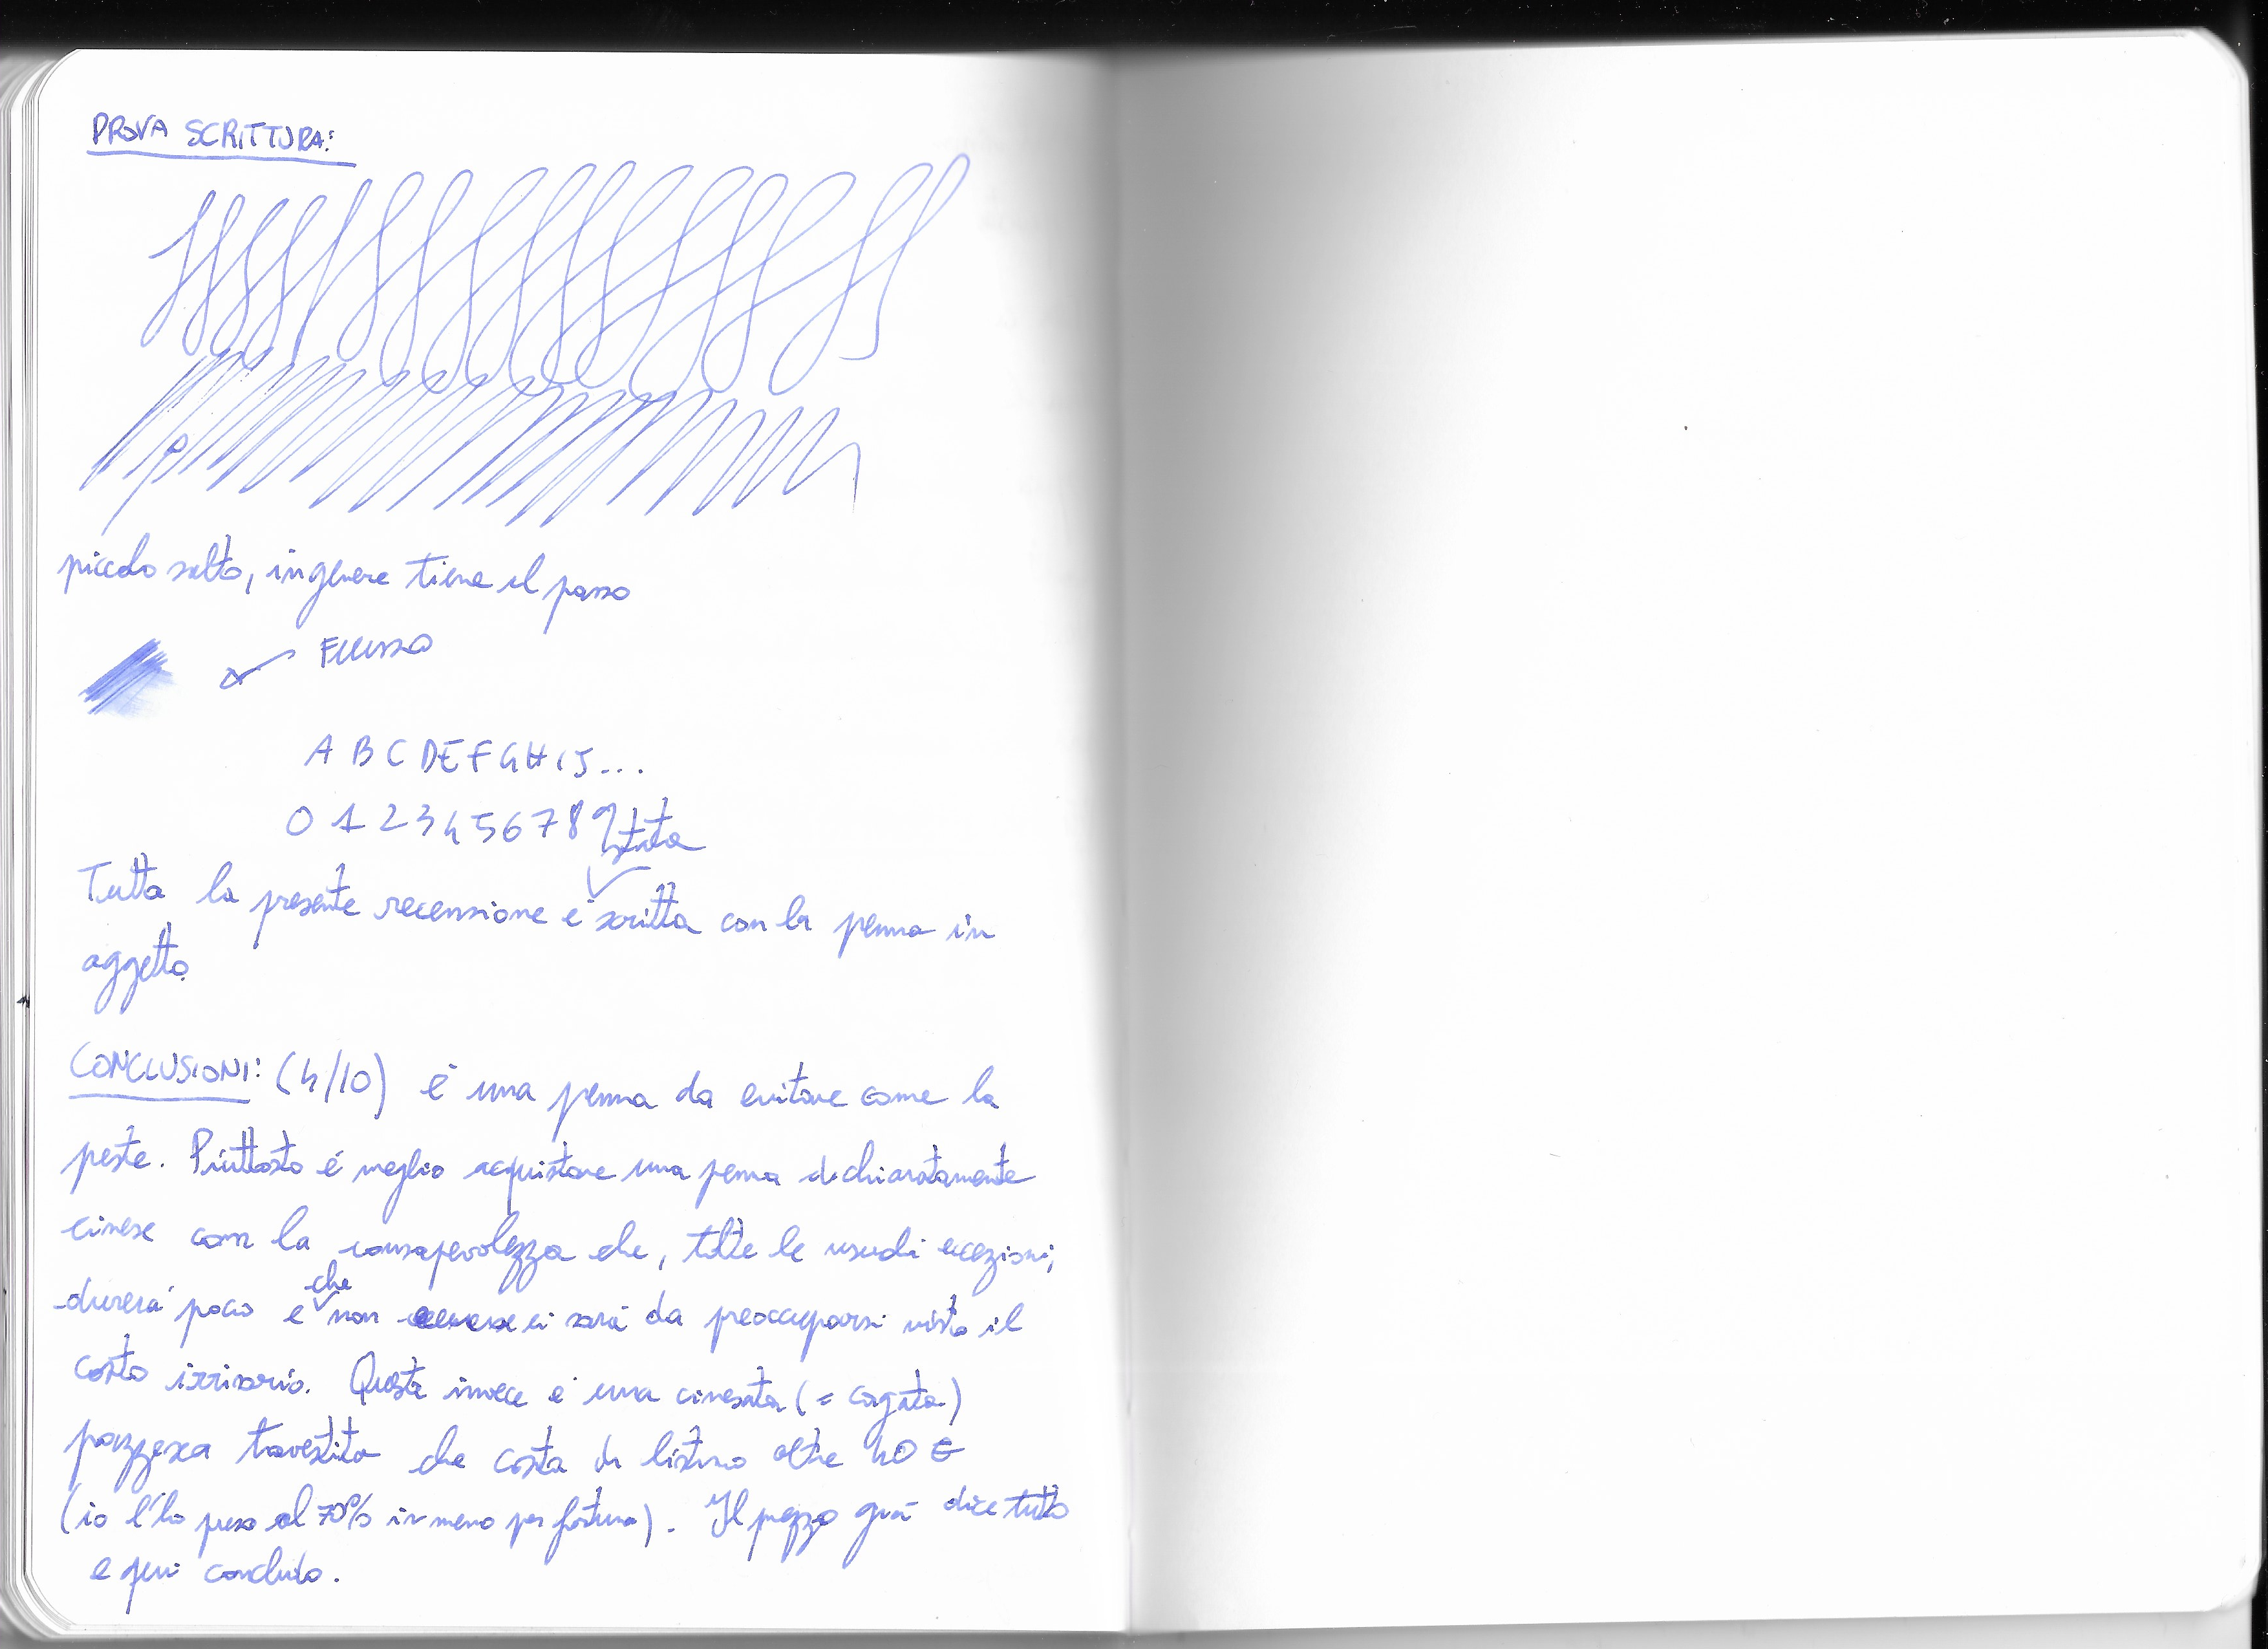 PROVA SCRITTURA:
piccolo salto, in genere tiene il passo
FLUSSO
A B C D E F G H I J ...
0 1 2 3 4 5 6 7 8 9
stata
Tutta la presente recensione è scritta con la penna in
oggetto.
CONCLUSIONI: (4/10) è una penna da evitare come la
peste. Piuttosto è meglio acquistare una penna dichiaratamente
cinese con la consapevolezza che, tolte le usuali eccezioni,
che
durerà poco e non ci sarà da preoccuparsi visto il
costo irrisorio. Questa invece è una cinesata (= cagata)
pazzesca travestita che costa di listino oltre 40 €
(io l'ho presa al 70% in meno per fortuna). Il prezzo già dice tutto
e qui concludo.